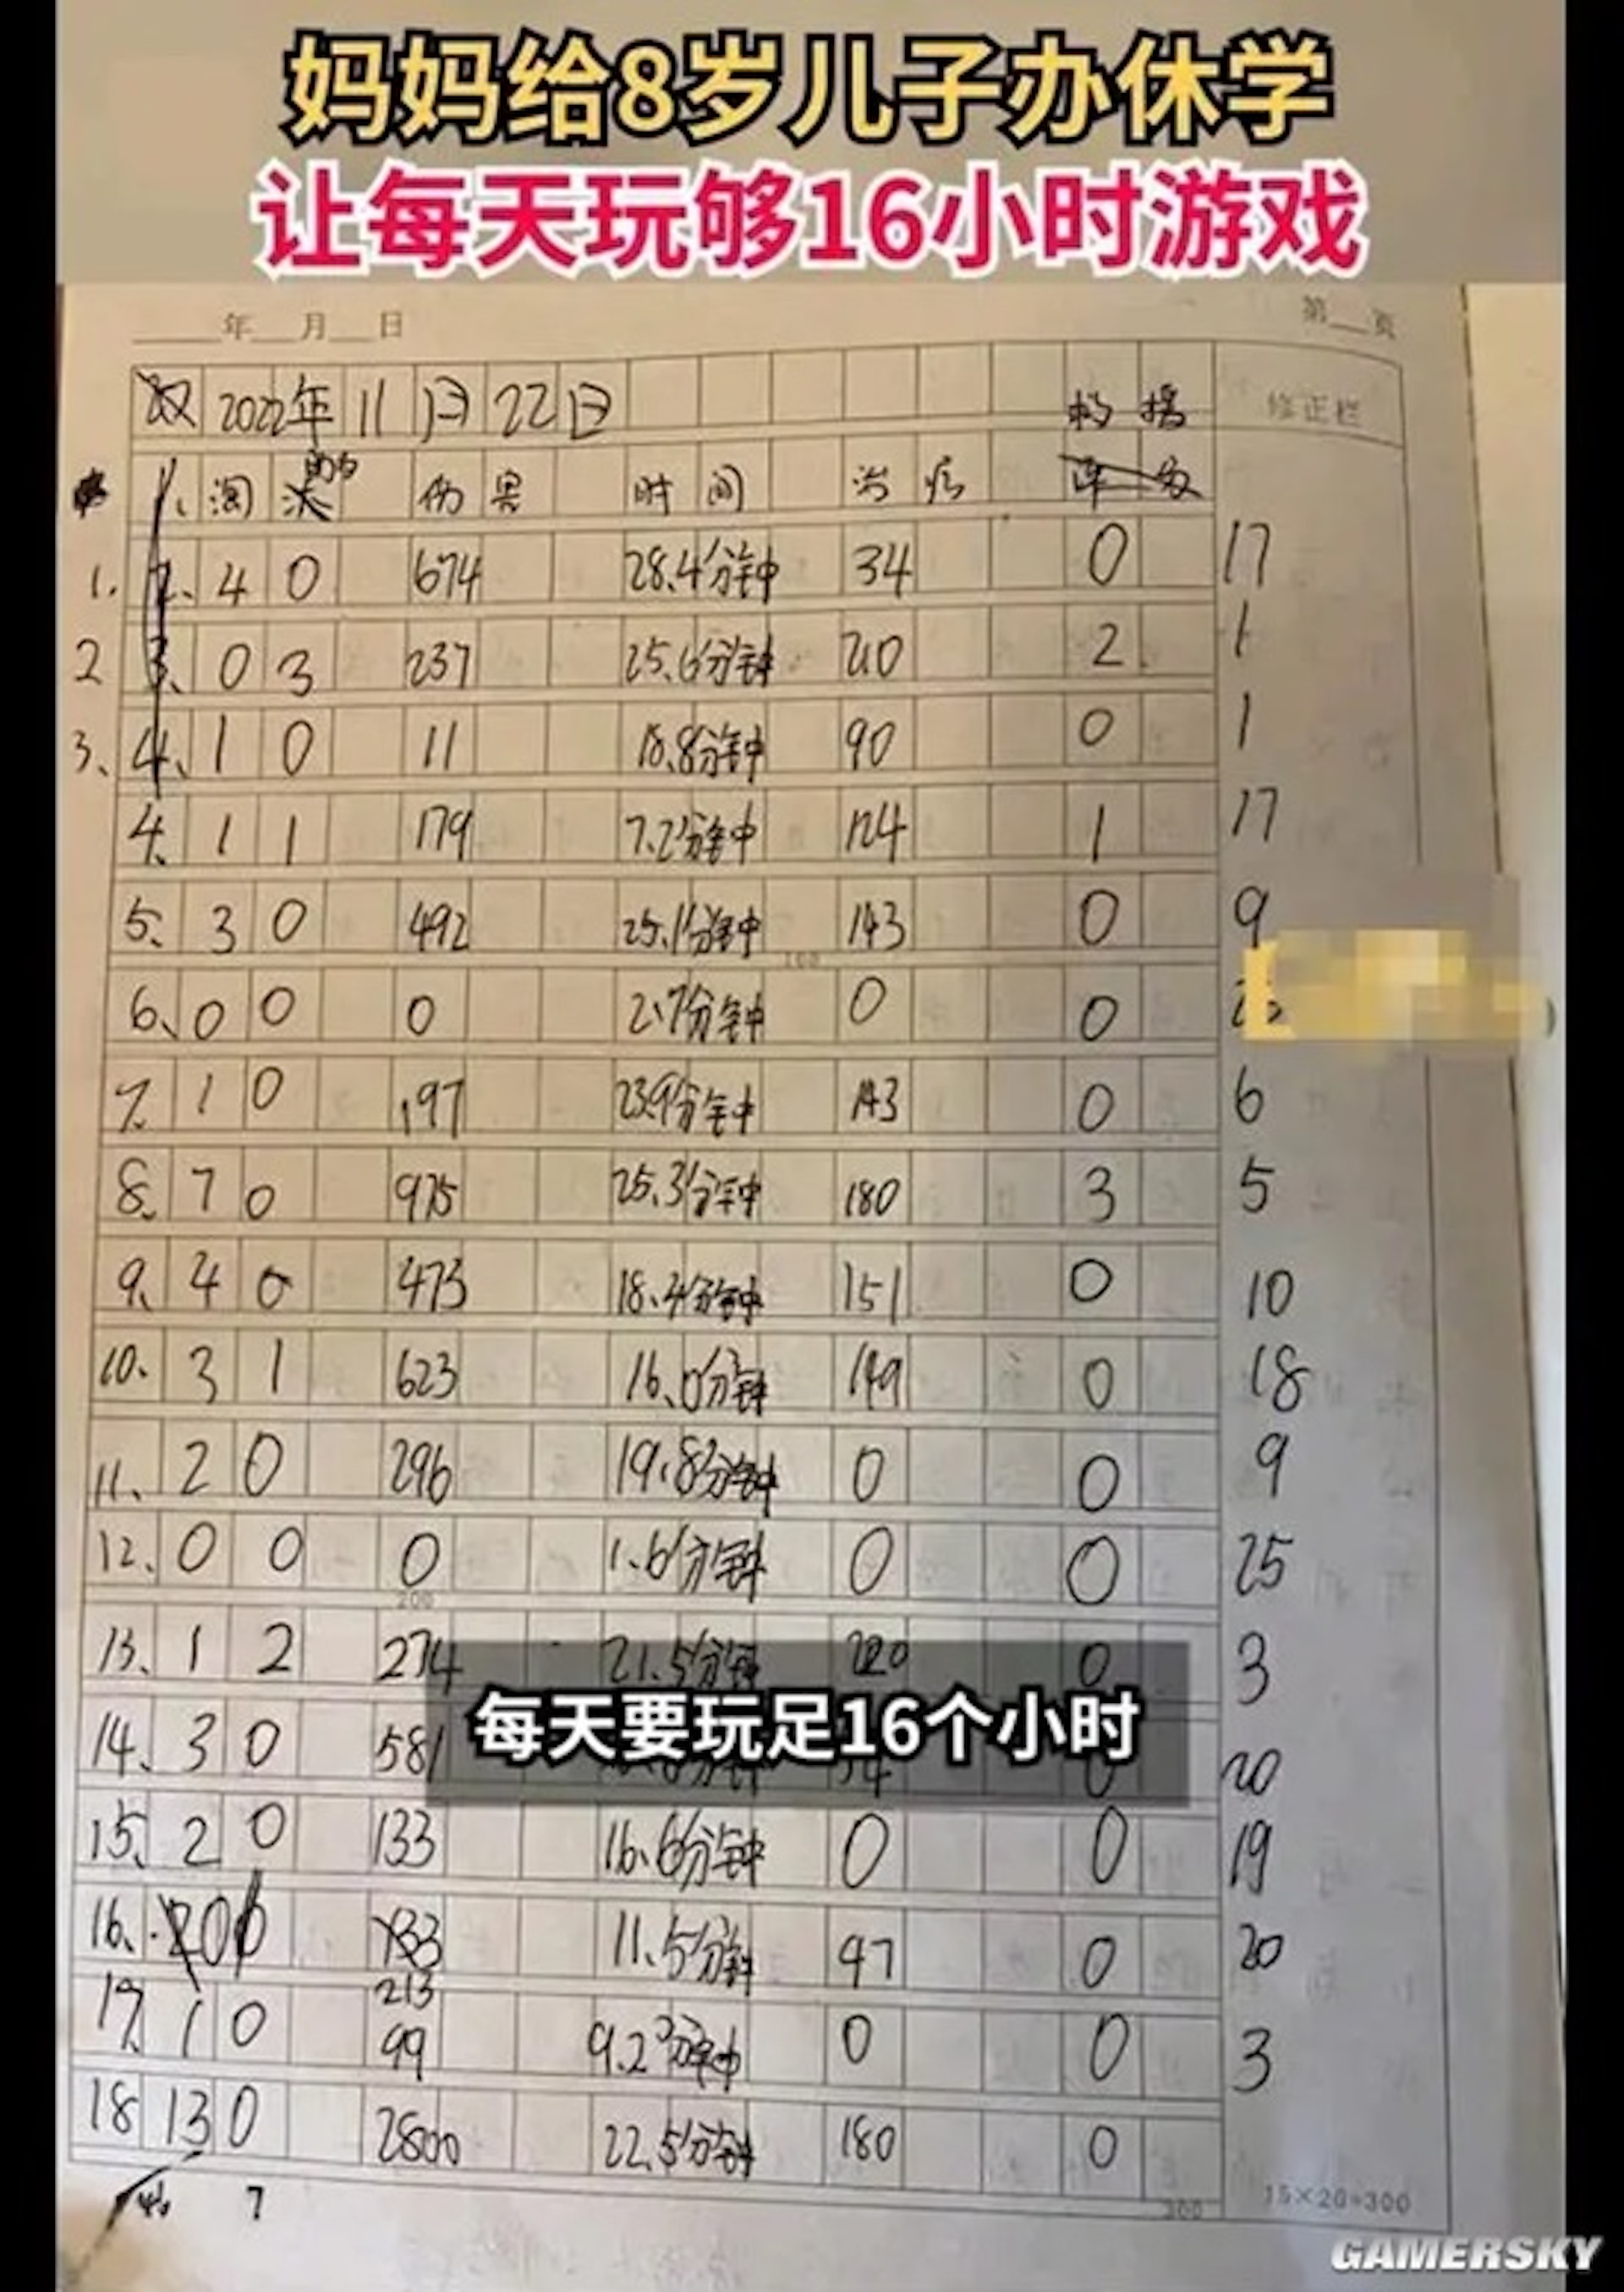 妈妈给8岁儿子办休学
让每天玩够16小时游戏
年 月 日 第 页
2022年11月22日 修正栏
淘汰 助攻 伤害 时间 治疗
1. 4 0 674 28.4分钟 34 0 17
2 0 3 237 25.6分钟 210 2 1
3、 1 0 11 18.8分钟 90 0 1
4、 1 1 179 7.2分钟 124 1 17
5、 3 0 492 25.1分钟 143 0 9
6、 0 0 0 2.7分钟 0 0
7、 1 0 197 23.9分钟 143 0 6
8、 7 0 975 25.3分钟 180 3 5
9、 4 0 473 18.4分钟 151 0 10
10、 3 1 623 16.0分钟 149 0 18
11、 2 0 296 19.8分钟 0 0 9
12、 0 0 0 1.6分钟 0 0 25
13、 1 2 274 21.5分钟 220 0 3
每天要玩足16个小时
14、 3 0 581 分钟 0 20
15、 2 0 133 16.6分钟 0 0 19
16、 0 213 11.5分钟 47 0 20
17、 1 0 99 9.2分钟 0 0 3
18 13 0 2800 22.5分钟 180 0
7 300 15×20=300
GAMERSKY